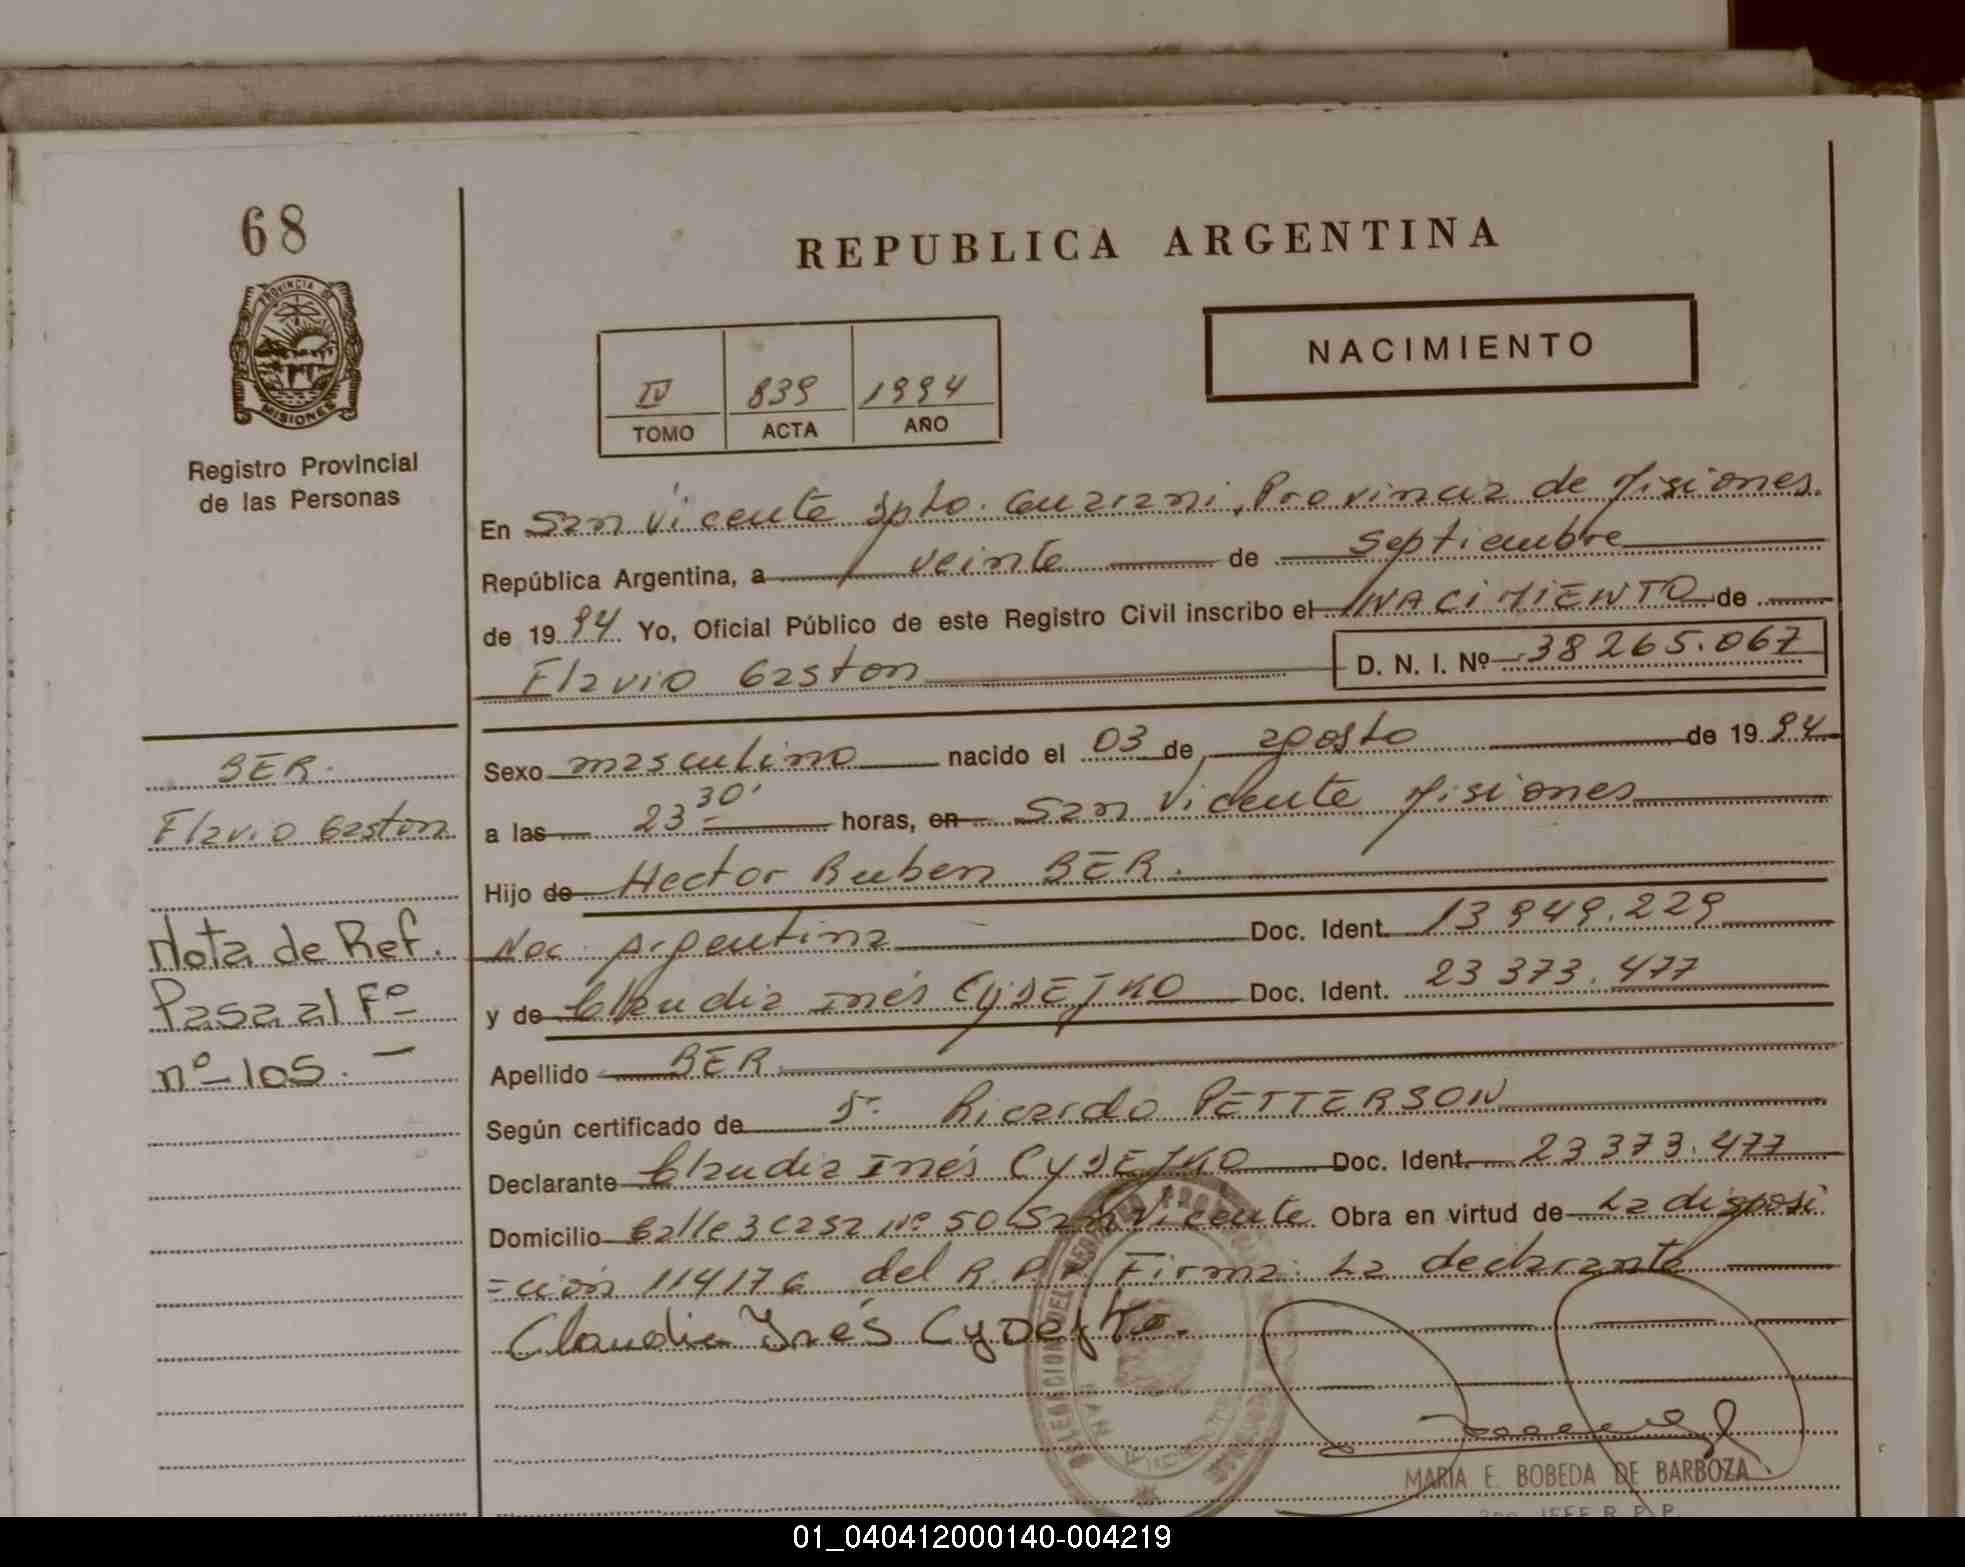 68
PROVINCIA DE
MISIONES
Registro Provincial
de las Personas
REPUBLICA ARGENTINA
NACIMIENTO
IV 839 1994
TOMO ACTA AÑO
En San Vicente Dpto. Guarani, Provincia de Misiones.
República Argentina, a veinte de Septiembre
de 1994 Yo, Oficial Público de este Registro Civil inscribo el NACIMIENTO de
Flavio Gaston D. N. I. Nº 38265.067
BER.
Flavio Gaston
Nota de Ref.
Pasa al Fº
nº 105. —
Sexo masculino nacido el 03 de agosto de 1994
a las 23 30' horas, en San Vicente Misiones
Hijo de Hector Ruben BER.
Nac. Argentina Doc. Ident. 13949.229
y de Claudia Inés CYDEJKO Doc. Ident. 23373.477
Apellido BER
Según certificado de Dr. Ricardo PETTERSON
Declarante Claudia Inés CYDEJKO Doc. Ident. 23373.477
Domicilio Calle 3 casa Nº 50 San Vicente. Obra en virtud de La disposi
=ción 114176 del R.P.P. Firma: La declarante
Claudia Inés Cydejko.
MARIA E. BOBEDA DE BARBOZA
JEFE R. P. P.
01_040412000140-004219